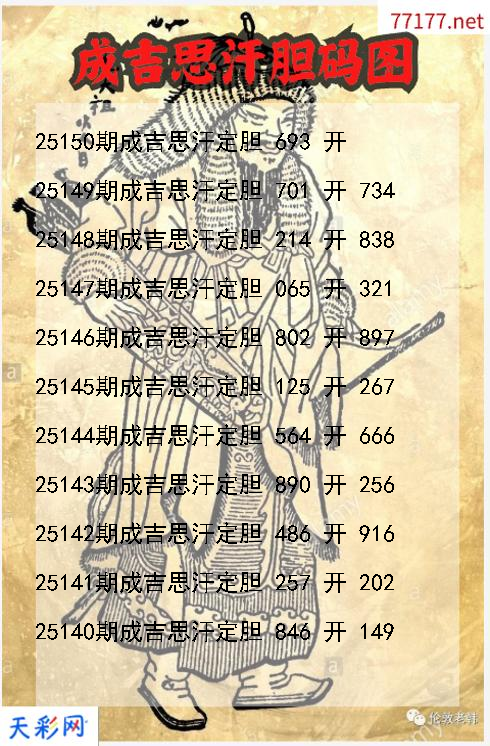 77177.net
成吉思汗胆码图
25150期成吉思汗定胆 693 开
25149期成吉思汗定胆 701 开 734
25148期成吉思汗定胆 214 开 838
25147期成吉思汗定胆 065 开 321
25146期成吉思汗定胆 802 开 897
25145期成吉思汗定胆 125 开 267
25144期成吉思汗定胆 564 开 666
25143期成吉思汗定胆 890 开 256
25142期成吉思汗定胆 486 开 916
25141期成吉思汗定胆 257 开 202
25140期成吉思汗定胆 846 开 149
天彩网
伦敦老韩